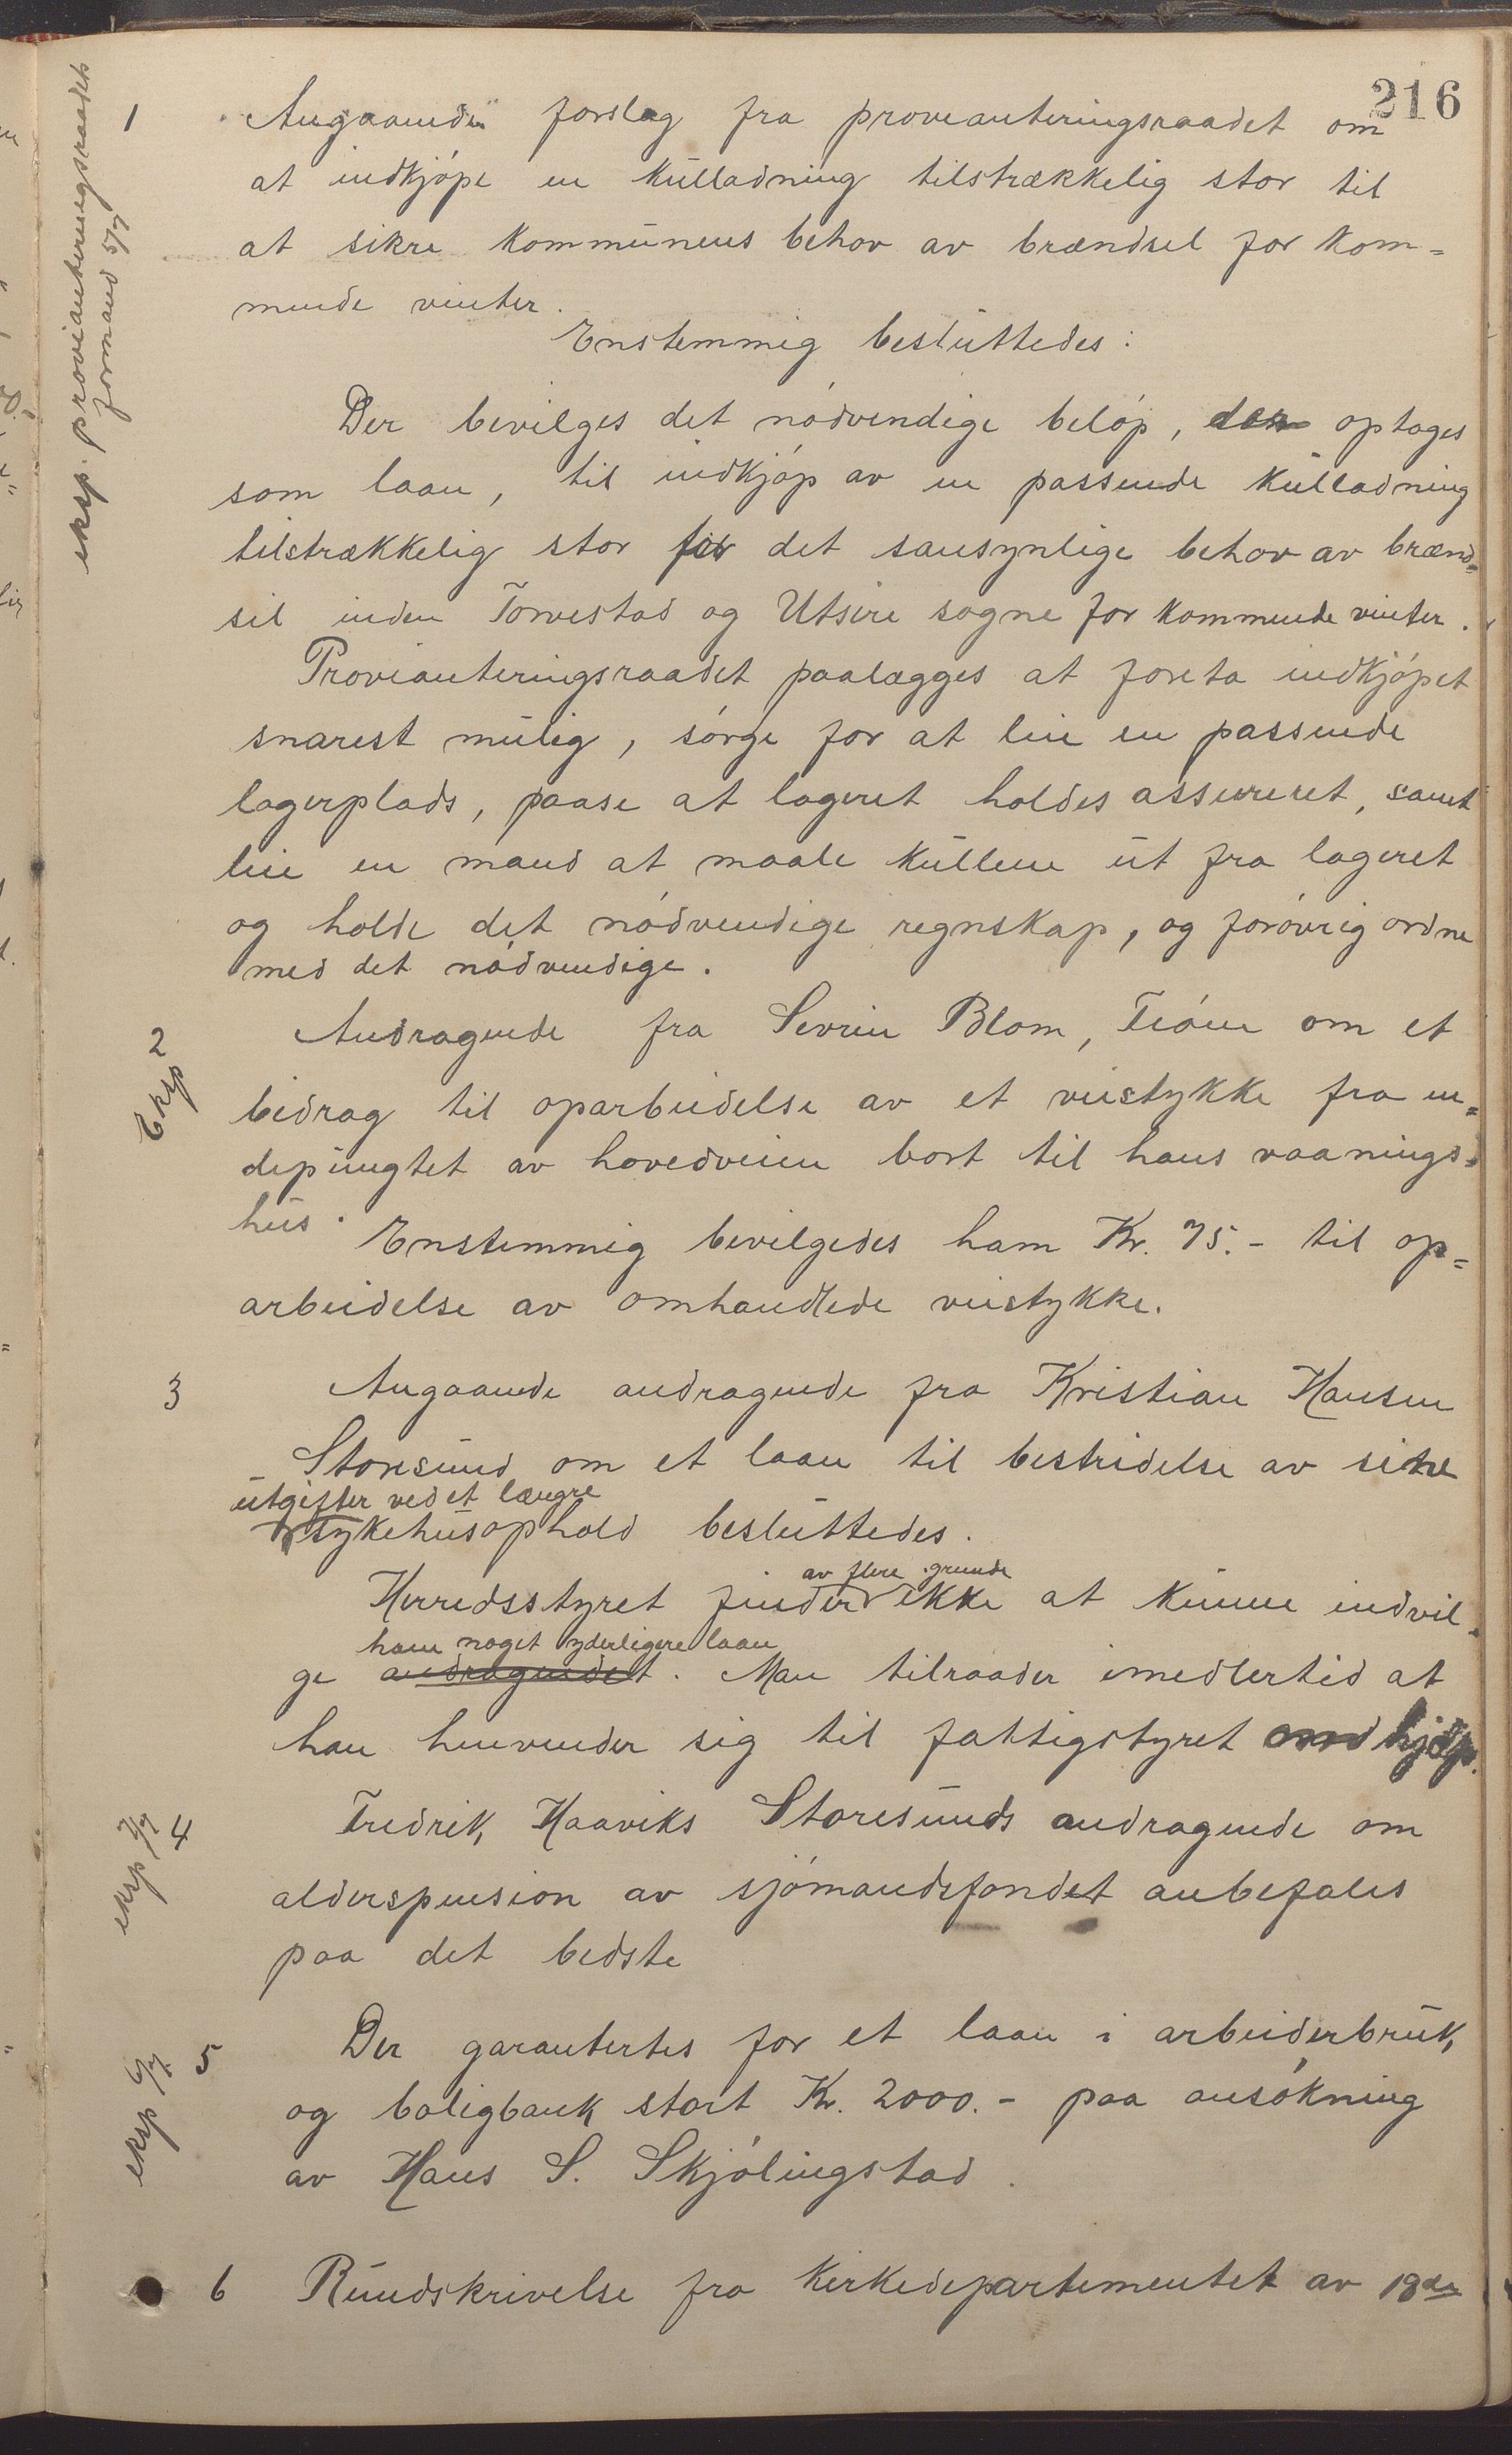 216
eksp. provianteringsraadets
formand 5/7
1 Angaaende forslag fra provianteringsraadet om
at indkjøpe en kulladning tilstrækkelig stor til
at sikre kommunens behov av brændsel for kom-
mende vinter.
Enstemmig besluttedes:
Der bevilges det nødvendige beløp, der optages
som laan, til indkjøp av en passende kulladning
tilstrækkelig stor for det sansynlige behov av brænd-
sel inden Torvestad og Utsire sogne for kommende vinter.
Provianteringsraadet paalægges at foreta indkjøpet
snarest mulig, sørge for at leie en passende
lagerplads, paase at lageret holdes assureret, samt
leie en mand at maale kullene ut fra lageret
og holde det nødvendige regnskap, og forøvrig ordne
med det nødvendige.
2 Andragende fra Sevrin Blom, Feøen om et
Eksp
bidrag til oparbeidelse av et veistykke fra en-
depungtet av hovedveien bort til hans vaanings-
hus.
Enstemmig bevilgedes ham Kr. 75.- til op-
arbeidelse av omhandlede veistykke.
3 Angaaende andragende fra Kristian Hansen
Storesund om et laan til bestridelse av sine
utgifter ved et længre
sykehusophold besluttedes.
av flere grunde
Herredsstyret finder ikke at kunne indvil-
ham noget yderligere laan
ge andragendet. Man tilraader imedlertid at
han henvender sig til fattigstyret om hjælp.
4 Fredrik Haaviks Storesunds andragende om
eksp 7/7
alderspension av sjømandsfondet anbefales
paa det bedste
5 Der garantertes for et laan i arbeiderbruk
eksp 6/7
og boligbank stort Kr. 2000.- paa ansøkning
av Hans S. Skjølingstad.
6 Rundskrivelse fra Kirkedepartementet av 18de